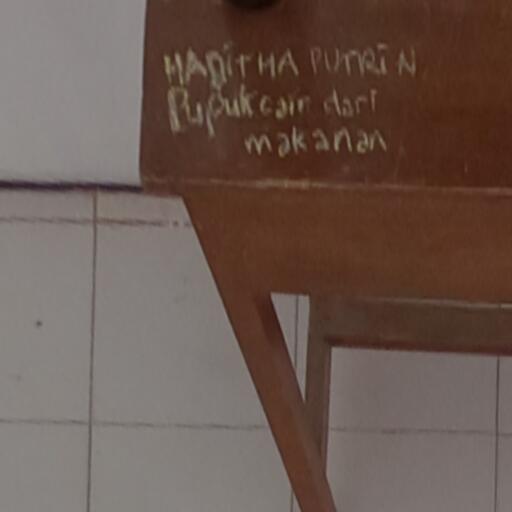 HADITHA PUTRI N
Pupuk cair dari
makanan